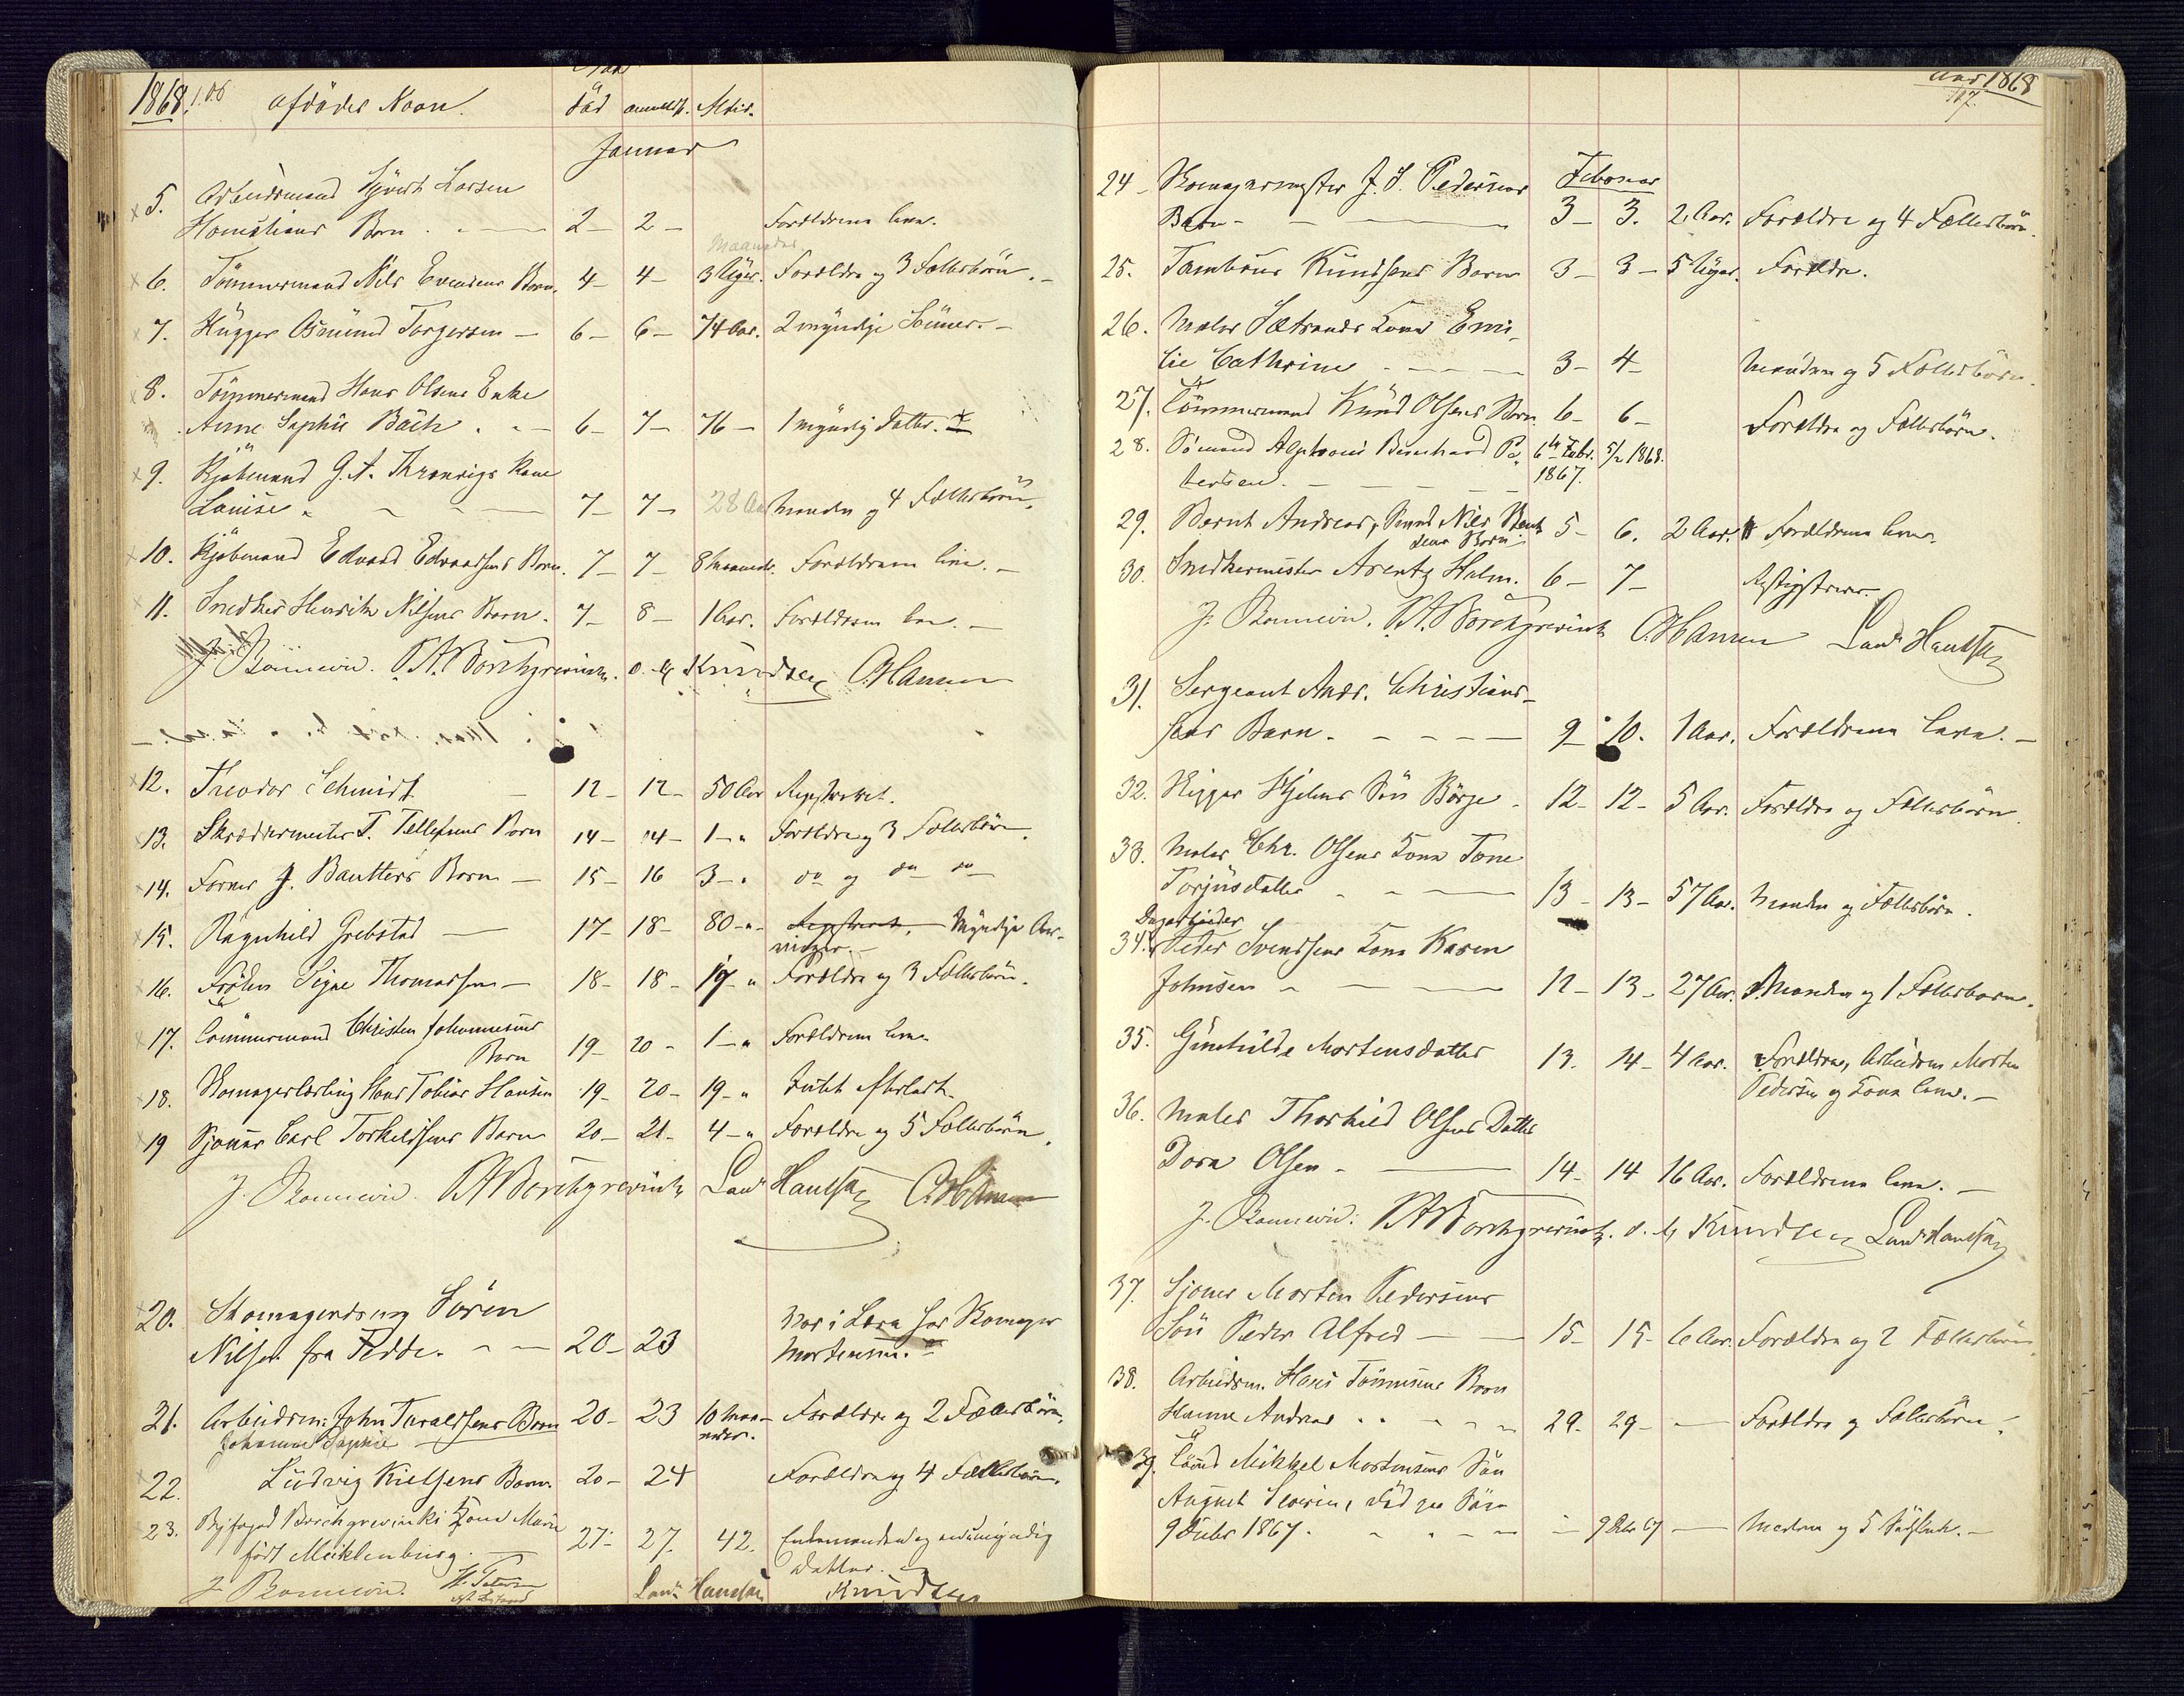 1868. 106 Afdødes Navn. død anmeldt. Alder.
Januar
5. Arbeidsmand Sjvert Larsen
Barn 2 - 2 - Forældrene leve.
Maaneder
6. Tömmermand Nils Evensens Barn. 4 - 4 - 3 Uger. Forældre og 3 Fællesbörn. -
7. Rygger Asmund Torgersen - 6 - 6 - 74 Aar. 2 myndige Sönner. -
8. Tömmermand Hans Olsens Enke
Anne Sophie Bach . - - 6 - 7 - 76 - 1 myndig Datter.
9. Kjøbmand G. A. Thronsigs Kone
Louise - - - 7 - 7 - 28 Aar Manden og 4 Fællesbörn.
10. Kjøbmand Edvard Edvardsens Barn. 7 - 7 - 8 Maaneder. Forældrene leve. -
11. Snedker Henrik Nilsens Barn. 7 - 8 - 1 Aar. Forældrene leve. -
J. Bonnevie. Borchgrevink. O. M Knudsen C. Hansen
12. Theodor Schmidt - 12 - 12 - 50 Aar Registreret.
13. Skræddermester T. Tellefsens Barn 14 - 14 - 1 - " Forældre og 3 Fællesbörn.
14. Farver J. Bautlers Barn - 15 - 16 3 - " do og do do
15. Ragnhild Grebstad - 17 - 18 - 80 - " Registreret. - Myndige Ar-
vinger. -
16. Frøken Signe Thomassen - 18 - 18 - 19 - " Forældre og 3 Fællesbörn.
17. Tömmermand Christen Johannesens
Barn 19 - 20 - 1 - " Forældrene leve.
18. Skomagerlærling Hans Tobias Hansen 19 - 20 - 19 - " Intet efterladt.
19 Sjouer Carl Torkildsens Barn 20 - 21 - 4 - " Forældre og 5 Fællesbörn.
J. Bonnevie. Borchgrevink Laur Hantho C. Hansen
20. Skomagerdreng Sören
Nilsen fra Fedde. - - 20 - 23 Var i Lære hos Skomager
Mortensen. -
21. Arbeidsm: John Taraldsens Barn 20 - 23 10 Maa- Forældre og 2 Fællesbörn.
Johanne Sophie neder.
22. Ludvig Kielsens Barn 20 - 24 Forældre og 4 Fællesbörn.
23. Byfoged Borchgrevinks Kone Marie
født Meiklenburg. 27 - 27. 42. Enkemanden og en umyndig
Datter. -
J. Bonnevie. H. Petersen Laur Hantho Knudsen
Aar 1868
107.
Februar
24 - Skomagermester J. S. Pedersens
Barn - - - 3 - 3. 2 Aar. Forældre og 4 Fællesbörn.
25. Tambour Knudsens Barn 3 - 3 - 5 Uger. Forældre.
26. Maler Sætrands Kone Emi-
lie Cathrine - - - 3 - 4 - Manden og 5 Fællesbörn.
27. Tömmermand Knud Olsens Barn. 6 - 6 - Forældre og Fællesbörn.
28. Sömand Alphons Bernhard Pe- 6te Febr. 5/2 1868.
tersen. - - - 1867.
29. Bernt Andreas, Smed Nils Bent 5 - 6. 2 Aar. Forældrene leve.
sens Barn.
30. Snedkermester Arentz Holm. 6 - 7 - Registreres
J. Bonnevie. Borchgrevink C. Hansen Laur Hantho
31. Sergeant Andr. Christians-
sens Barn. - - - 9 - 10. 1 Aar. Forældrene leve. -
32. Rigger Hjelms Sön Börge - 12 - 12 - 5 Aar. Forældre og Fællesbörn.
33. Maler Chr. Olsens Kone Tone
Torjusdatter - - - 13 - 13 - 57 Aar. Manden og Fællesbörn.
Dagarbeider
34. Peder Svendsens Kone Karen
Johnsen - - - 12 - 13 - 27 Aar. Manden og 1 Fællesbarn.
35. Gunhilde Mortensdatter 13. 14 - 4 Aar. Forældrene, Arbeidsm. Morten
Pedersen og Kone leve. -
36. Maler Thorkild Olsens Datter
Dora Olsen - - 14 - 14 16 Aar. Forældrene leve. -
J. Bonnevie. Borchgrevink. O. M Knudsen Laur Hantho
37. Sjouer Morten Pedersens
Sön Peder Alfred - - 15 - 15 - 6 Aar. Forældre og 2 Fællesbörn.
38. Arbeidsm. Hans Tönnesens Barn
Hanne Andrea . . - - 29. 29 - - Forældre og Fællesbörn.
39. Tömd Mikkel Mortensens Sön
August Severin, död paa Söen
9 Febr 1867. - - - - 9 Febr 67 - Moderen og 5 Södskende. -